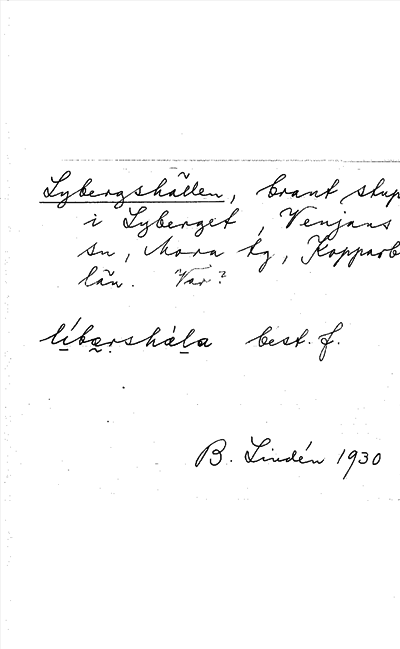 Lybergshällen, brant stup
i Lyberget, Venjans
sn, Mora tg, Kopparb
län. Var?
best. f.
B. Lindén 1930